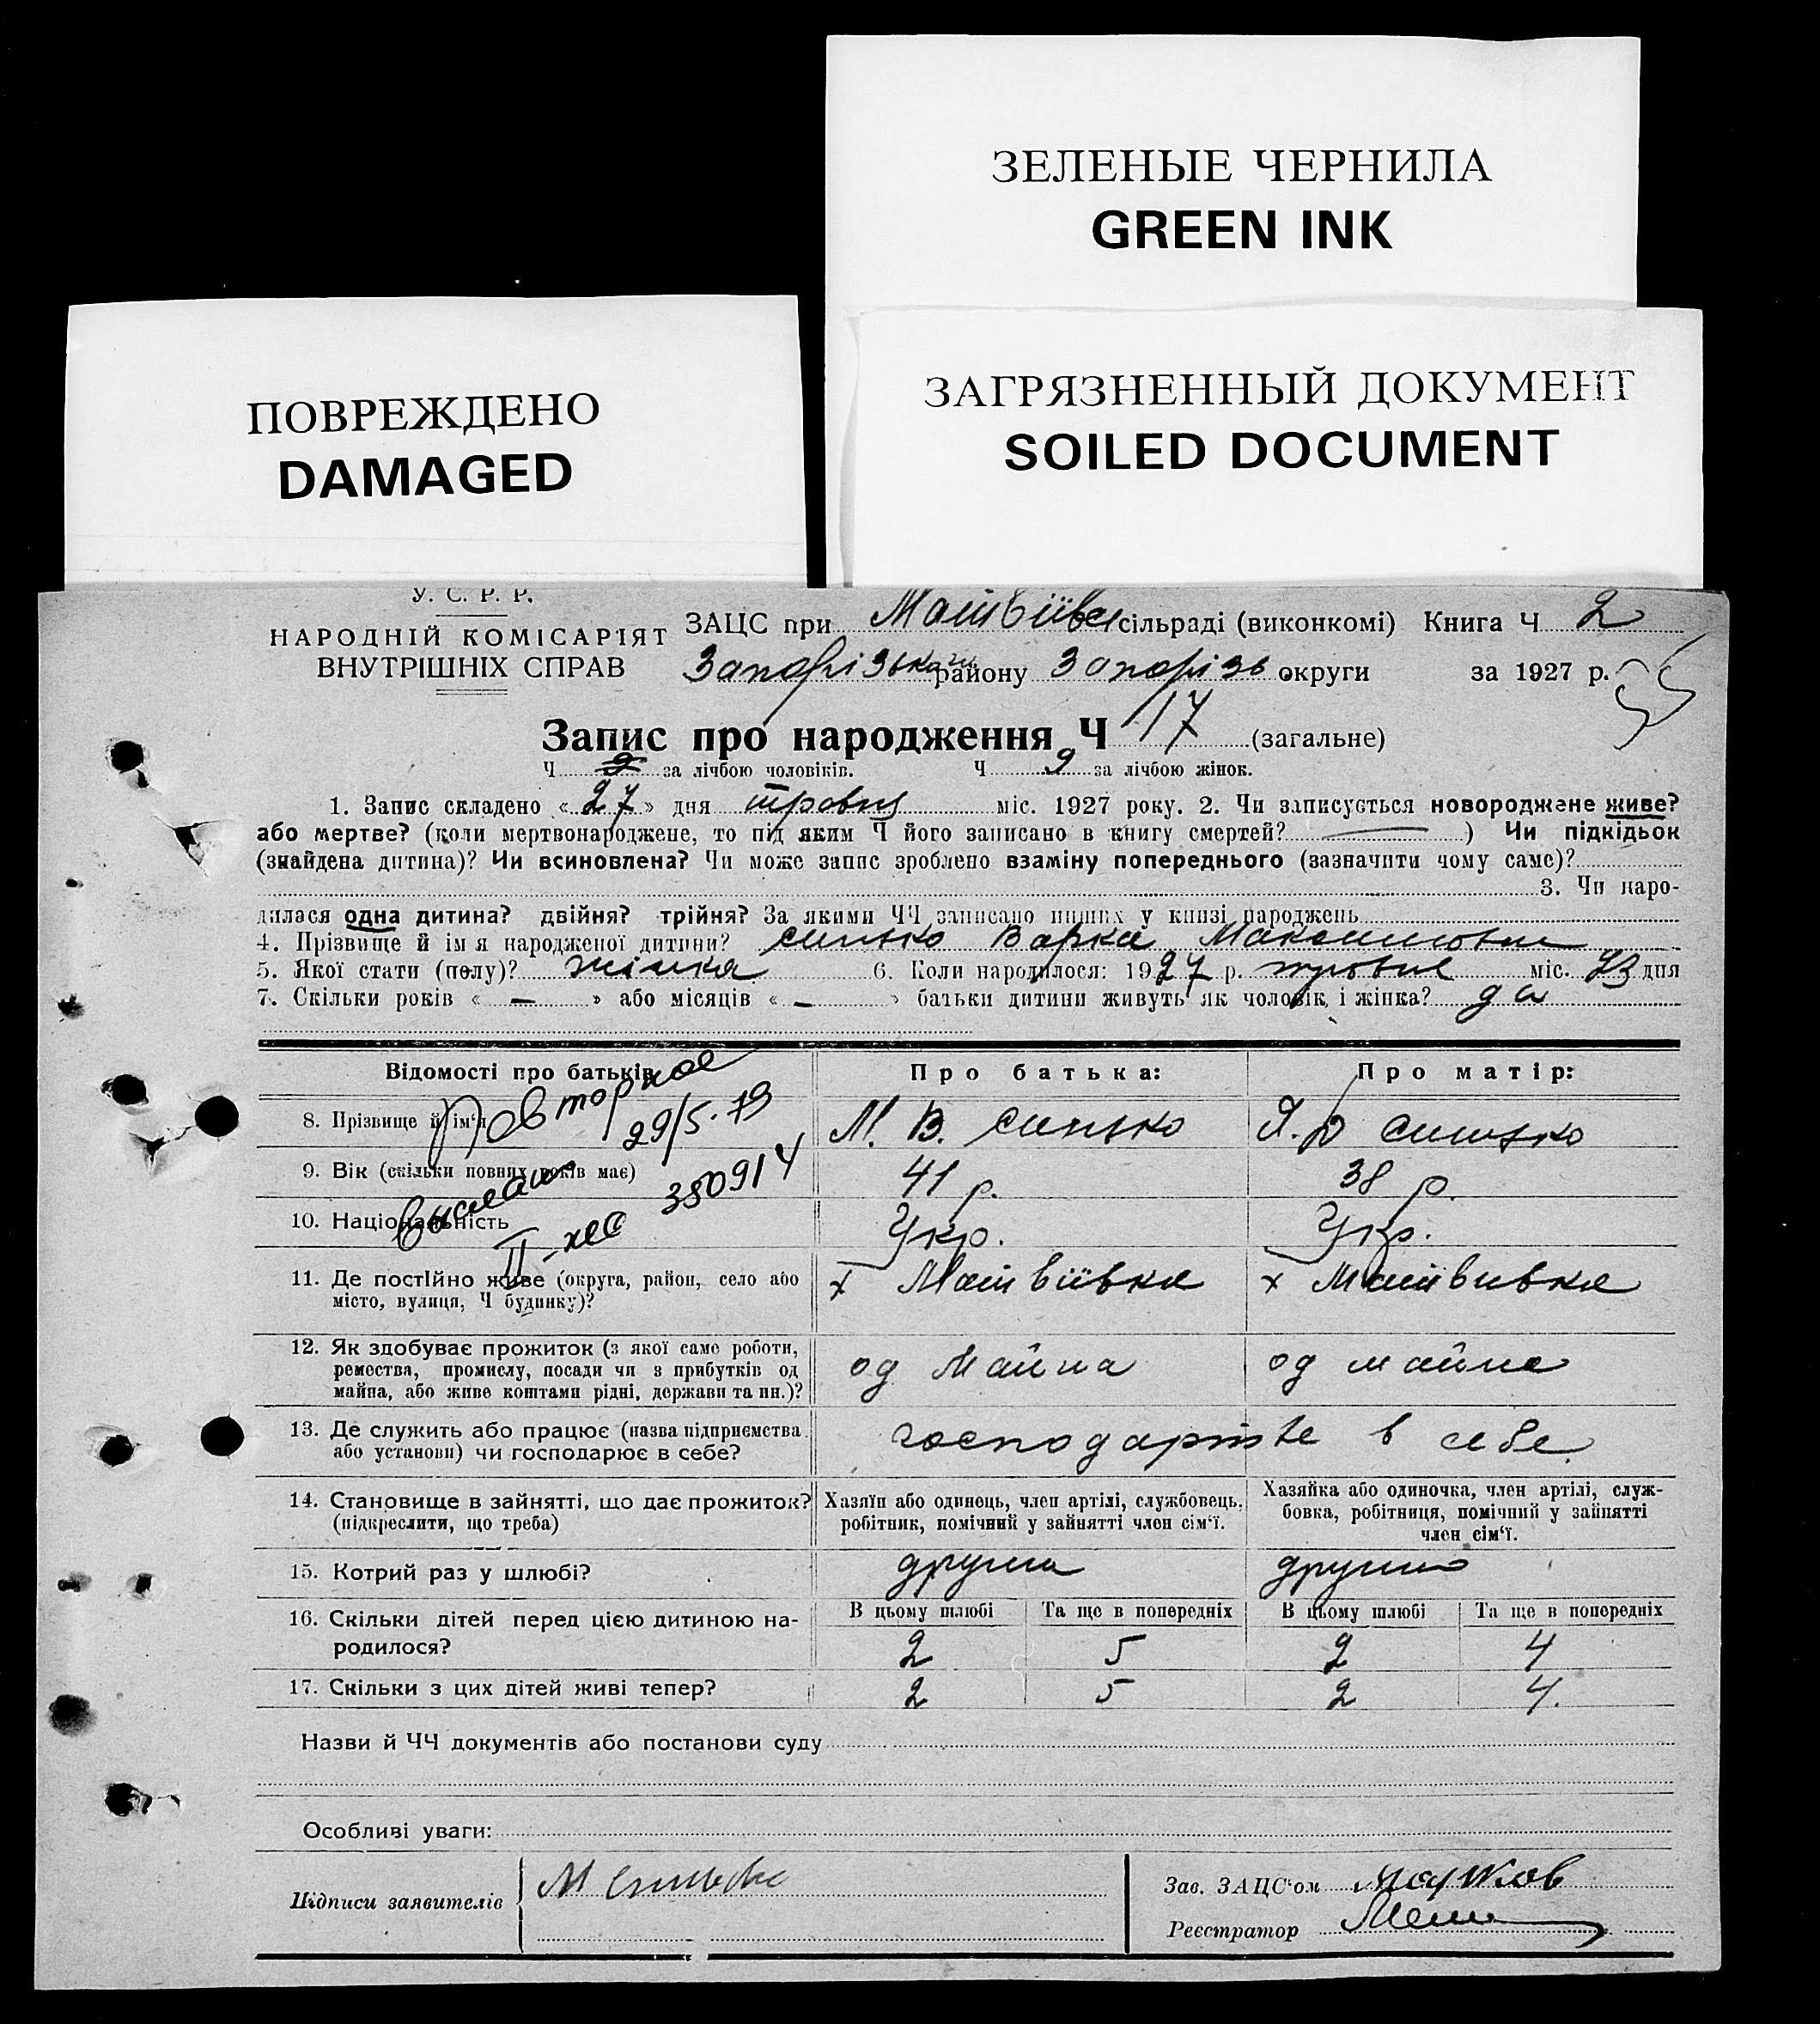 ЗЕЛЕНЫЕ ЧЕРНИЛА
GREEN INK
ПОВРЕЖДЕНО
DAMAGED
ЗАГРЯЗНЕННЫЙ ДОКУМЕНТ
SOILED DOCUMENT
У. С. Р. Р.
НАРОДНІЙ КОМІСАРІЯТ
ВНУТРІШНІХ СПРАВ
ЗАЦС при сільраді (виконкомі) Книга Ч 2
району Запорізь округи за 1927 р.
Запис про народження Ч 17 (загальне)
Ч 9 за лічбою чоловіків. Ч 9 за лічбою жінок.
1. Запис складено «27» дня травня міс. 1927 року. 2. Чи записується новороджене живе?
або мертве? (коли мертвонароджене, то під яким Ч його записано в книгу смертей? — ) Чи підкідьок
(знайдена дитина)? Чи всиновлена? Чи може запис зроблено взаміну попереднього (зазначити чому саме)?
3. Чи наро-
дилася одна дитина? двійня? трійня? За якими ЧЧ записано инших у книзі народжень
4. Прізвище й ім'я народженої дитини? Сипько Варка Максимовна
5. Якої стати (полу)? жінка 6. Коли народилося: 1927 р. травня міс. 23 дня
7. Скільки років « — » або місяців « — » батьки дитини живуть як чоловік і жінка? да
Відомості про батьків
Про батька:
Про матір:
Повторное
29/5.79
350914
8. Прізвище й ім'я М. В. Сипько Я. Сипько
9. Вік (скільки повних років має) 41 р. 38 р.
10. Національність Укр. Укр.
11. Де постійно живе (округа, район, село або
місто, вулиця, Ч будинку)? х Матвіівка х Матвивка
12. Як здобуває прожиток (з якої саме роботи,
ремества, промислу, посади чи з прибутків од
майна, або живе коштами рідні, держави та ин.)? од майна од майна
13. Де служить або працює (назва підприємства
або установи) чи господарює в себе? в себе
14. Становище в зайнятті, що дає прожиток?
(підкреслити, що треба)
Хазяїн або одинець, член артілі, службовець,
робітник, помічний у зайнятті член сім'ї.
Хазяйка або одиночка, член артілі, служ-
бовка, робітниця, помічний у зайнятті
член сім'ї.
15. Котрий раз у шлюбі?
16. Скільки дітей перед цією дитиною на-
родилося?
В цьому шлюбі Та ще в попередніх В цьому шлюбі Та ще в попередніх
2 5 2 4
17. Скільки з цих дітей живі тепер? 2 5 2 4.
Назви й ЧЧ документів або постанови суду
Особливі уваги:
Підписи заявителів М Сипько
Зав. ЗАЦС'ом
Реєстратор